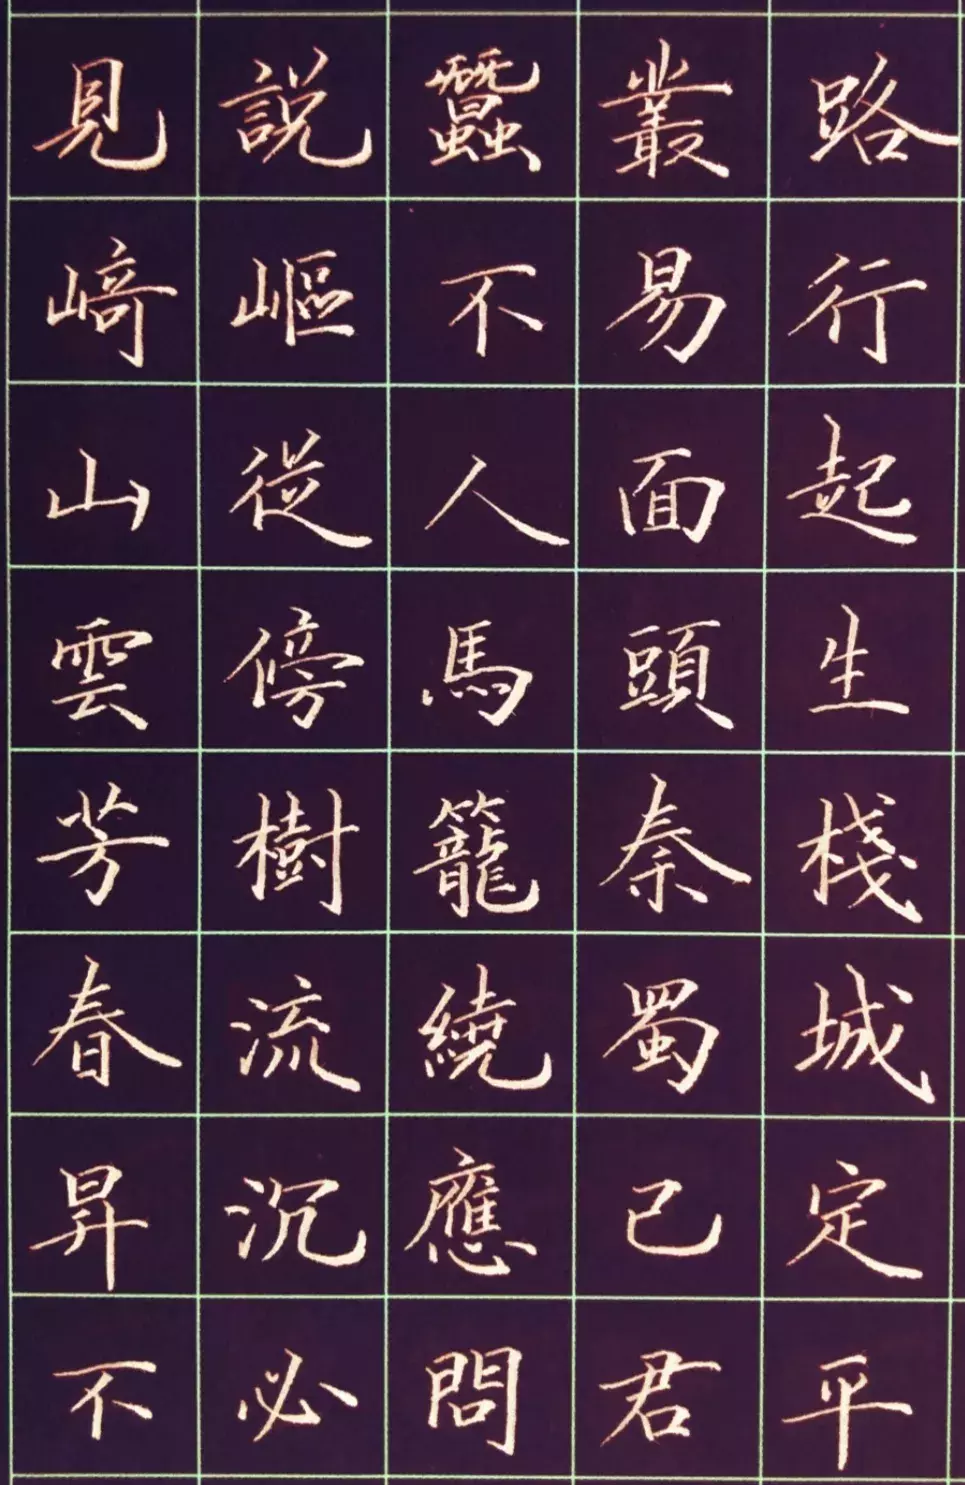 見說蠶叢路
崎嶇不易行
山從人面起
雲傍馬頭生
芳樹籠秦棧
春流繞蜀城
昇沉應已定
不必問君平